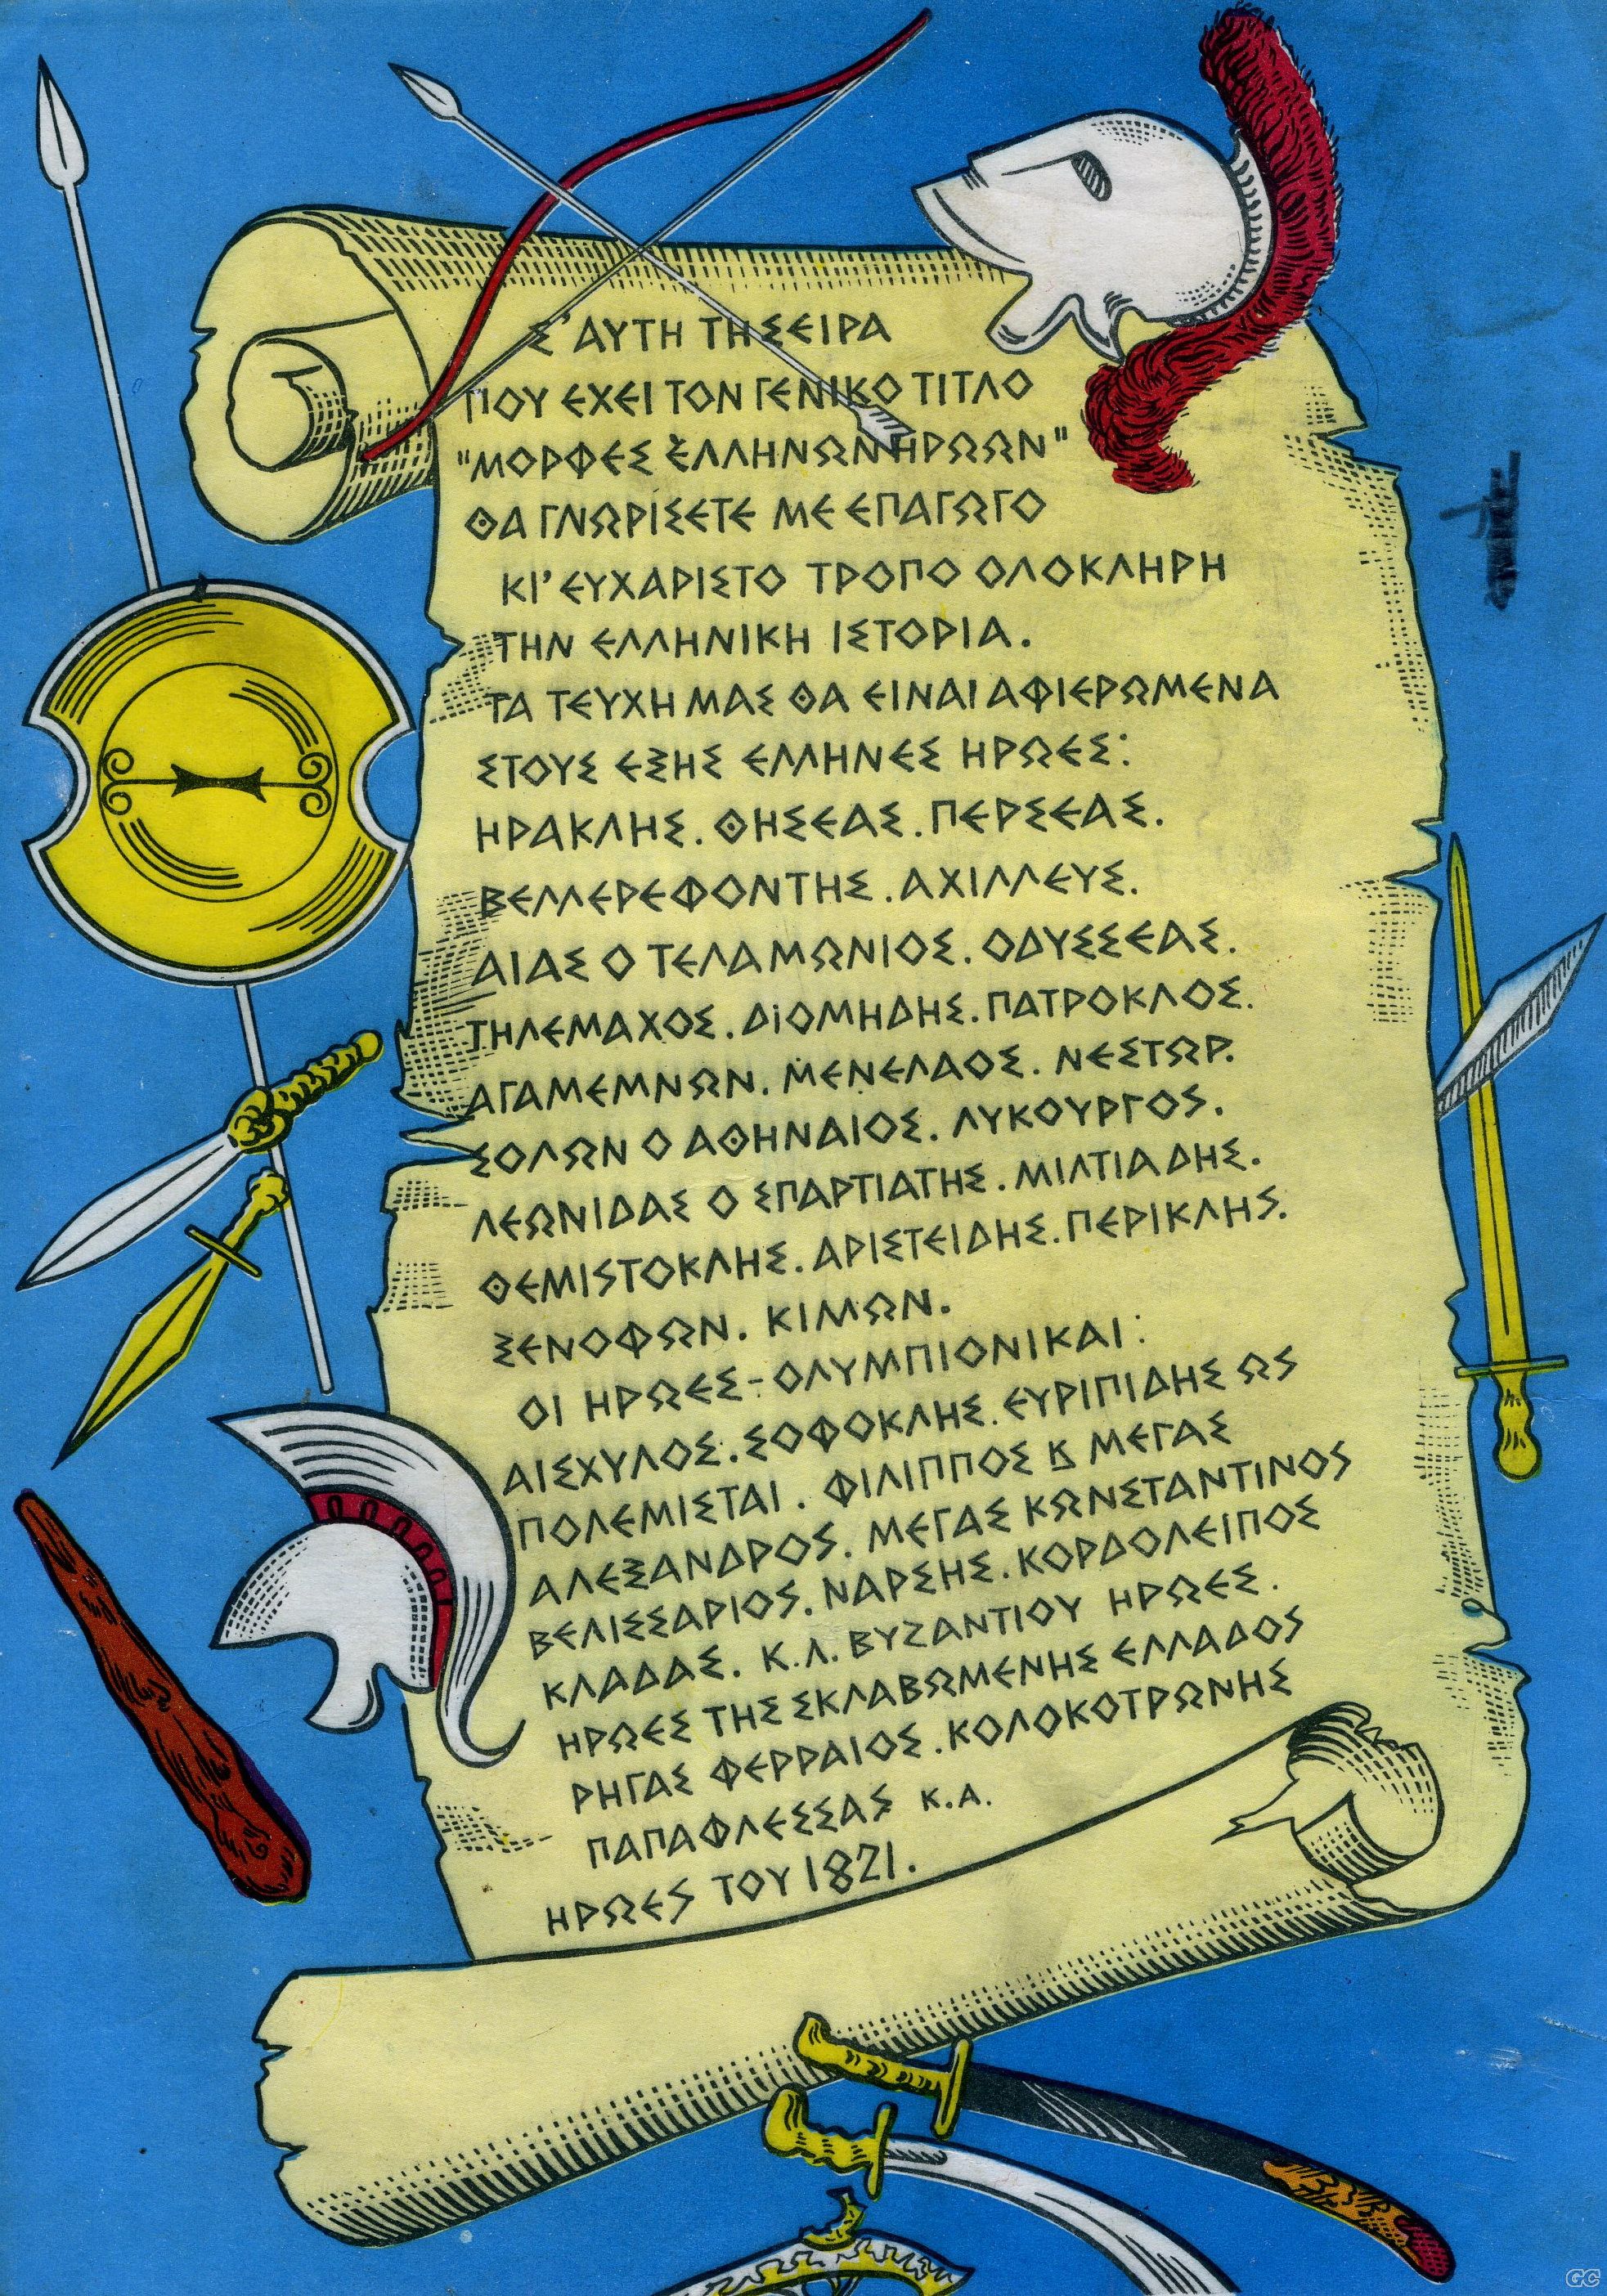 Σ' ΑΥΤΗ ΤΗ ΣΕΙΡΑ
ΠΟΥ ΕΧΕΙ ΤΟΝ ΓΕΝΙΚΟ ΤΙΤΛΟ
"ΜΟΡΦΕΣ ΕΛΛΗΝΩΝ ΗΡΩΩΝ"
ΘΑ ΓΝΩΡΙΣΕΤΕ ΜΕ ΕΠΑΓΩΓΟ
ΚΙ' ΕΥΧΑΡΙΣΤΟ ΤΡΟΠΟ ΟΛΟΚΛΗΡΗ
ΤΗΝ ΕΛΛΗΝΙΚΗ ΙΣΤΟΡΙΑ.
ΤΑ ΤΕΥΧΗ ΜΑΣ ΘΑ ΕΙΝΑΙ ΑΦΙΕΡΩΜΕΝΑ
ΣΤΟΥΣ ΕΞΗΣ ΕΛΛΗΝΕΣ ΗΡΩΕΣ:
ΗΡΑΚΛΗΣ. ΘΗΣΕΑΣ. ΠΕΡΣΕΑΣ.
ΒΕΛΛΕΡΕΦΟΝΤΗΣ. ΑΧΙΛΛΕΥΣ.
ΑΙΑΣ Ο ΤΕΛΑΜΩΝΙΟΣ. ΟΔΥΣΣΕΑΣ.
ΤΗΛΕΜΑΧΟΣ. ΔΙΟΜΗΔΗΣ. ΠΑΤΡΟΚΛΟΣ.
ΑΓΑΜΕΜΝΩΝ. ΜΕΝΕΛΑΟΣ. ΝΕΣΤΩΡ.
ΣΟΛΩΝ Ο ΑΘΗΝΑΙΟΣ. ΛΥΚΟΥΡΓΟΣ.
ΛΕΩΝΙΔΑΣ Ο ΣΠΑΡΤΙΑΤΗΣ. ΜΙΛΤΙΑΔΗΣ.
ΘΕΜΙΣΤΟΚΛΗΣ. ΑΡΙΣΤΕΙΔΗΣ. ΠΕΡΙΚΛΗΣ.
ΞΕΝΟΦΩΝ. ΚΙΜΩΝ.
ΟΙ ΗΡΩΕΣ-ΟΛΥΜΠΙΟΝΙΚΑΙ:
ΑΙΣΧΥΛΟΣ. ΣΟΦΟΚΛΗΣ. ΕΥΡΙΠΙΔΗΣ ΩΣ
ΠΟΛΕΜΙΣΤΑΙ. ΦΙΛΙΠΠΟΣ Β ΜΕΓΑΣ
ΑΛΕΞΑΝΔΡΟΣ. ΜΕΓΑΣ ΚΩΝΣΤΑΝΤΙΝΟΣ
ΒΕΛΙΣΣΑΡΙΟΣ. ΝΑΡΣΗΣ. ΚΟΡΔΟΛΕΙΠΟΣ
ΚΛΑΔΑΣ. Κ.Λ. ΒΥΖΑΝΤΙΟΥ ΗΡΩΕΣ.
ΗΡΩΕΣ ΤΗΣ ΣΚΛΑΒΩΜΕΝΗΣ ΕΛΛΑΔΟΣ
ΡΗΓΑΣ ΦΕΡΡΑΙΟΣ. ΚΟΛΟΚΟΤΡΩΝΗΣ
ΠΑΠΑΦΛΕΣΣΑΣ Κ.Α.
ΗΡΩΕΣ ΤΟΥ 1821.
GC